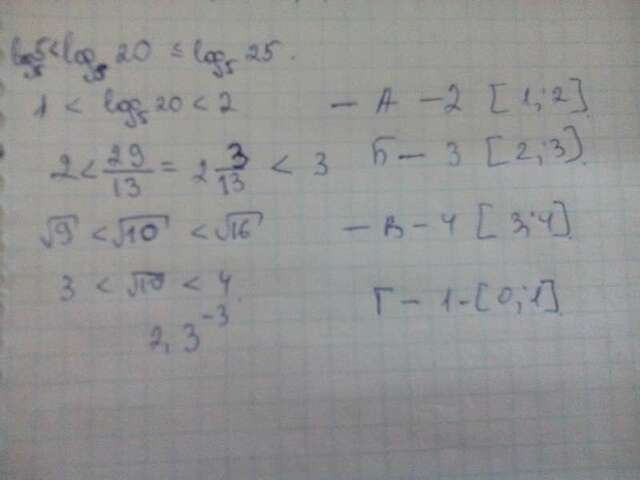 log₅5 < log₅20 ≤ log₅25.
1 < log₅20 < 2 — А — 2 [1;2]
2 < 29/13 = 2 3/13 < 3 Б — 3 [2;3].
√9 < √10 < √16 — В — 4 [3;4]
3 < √10 < 4.
2,3⁻³ Г — 1 - [0;1]